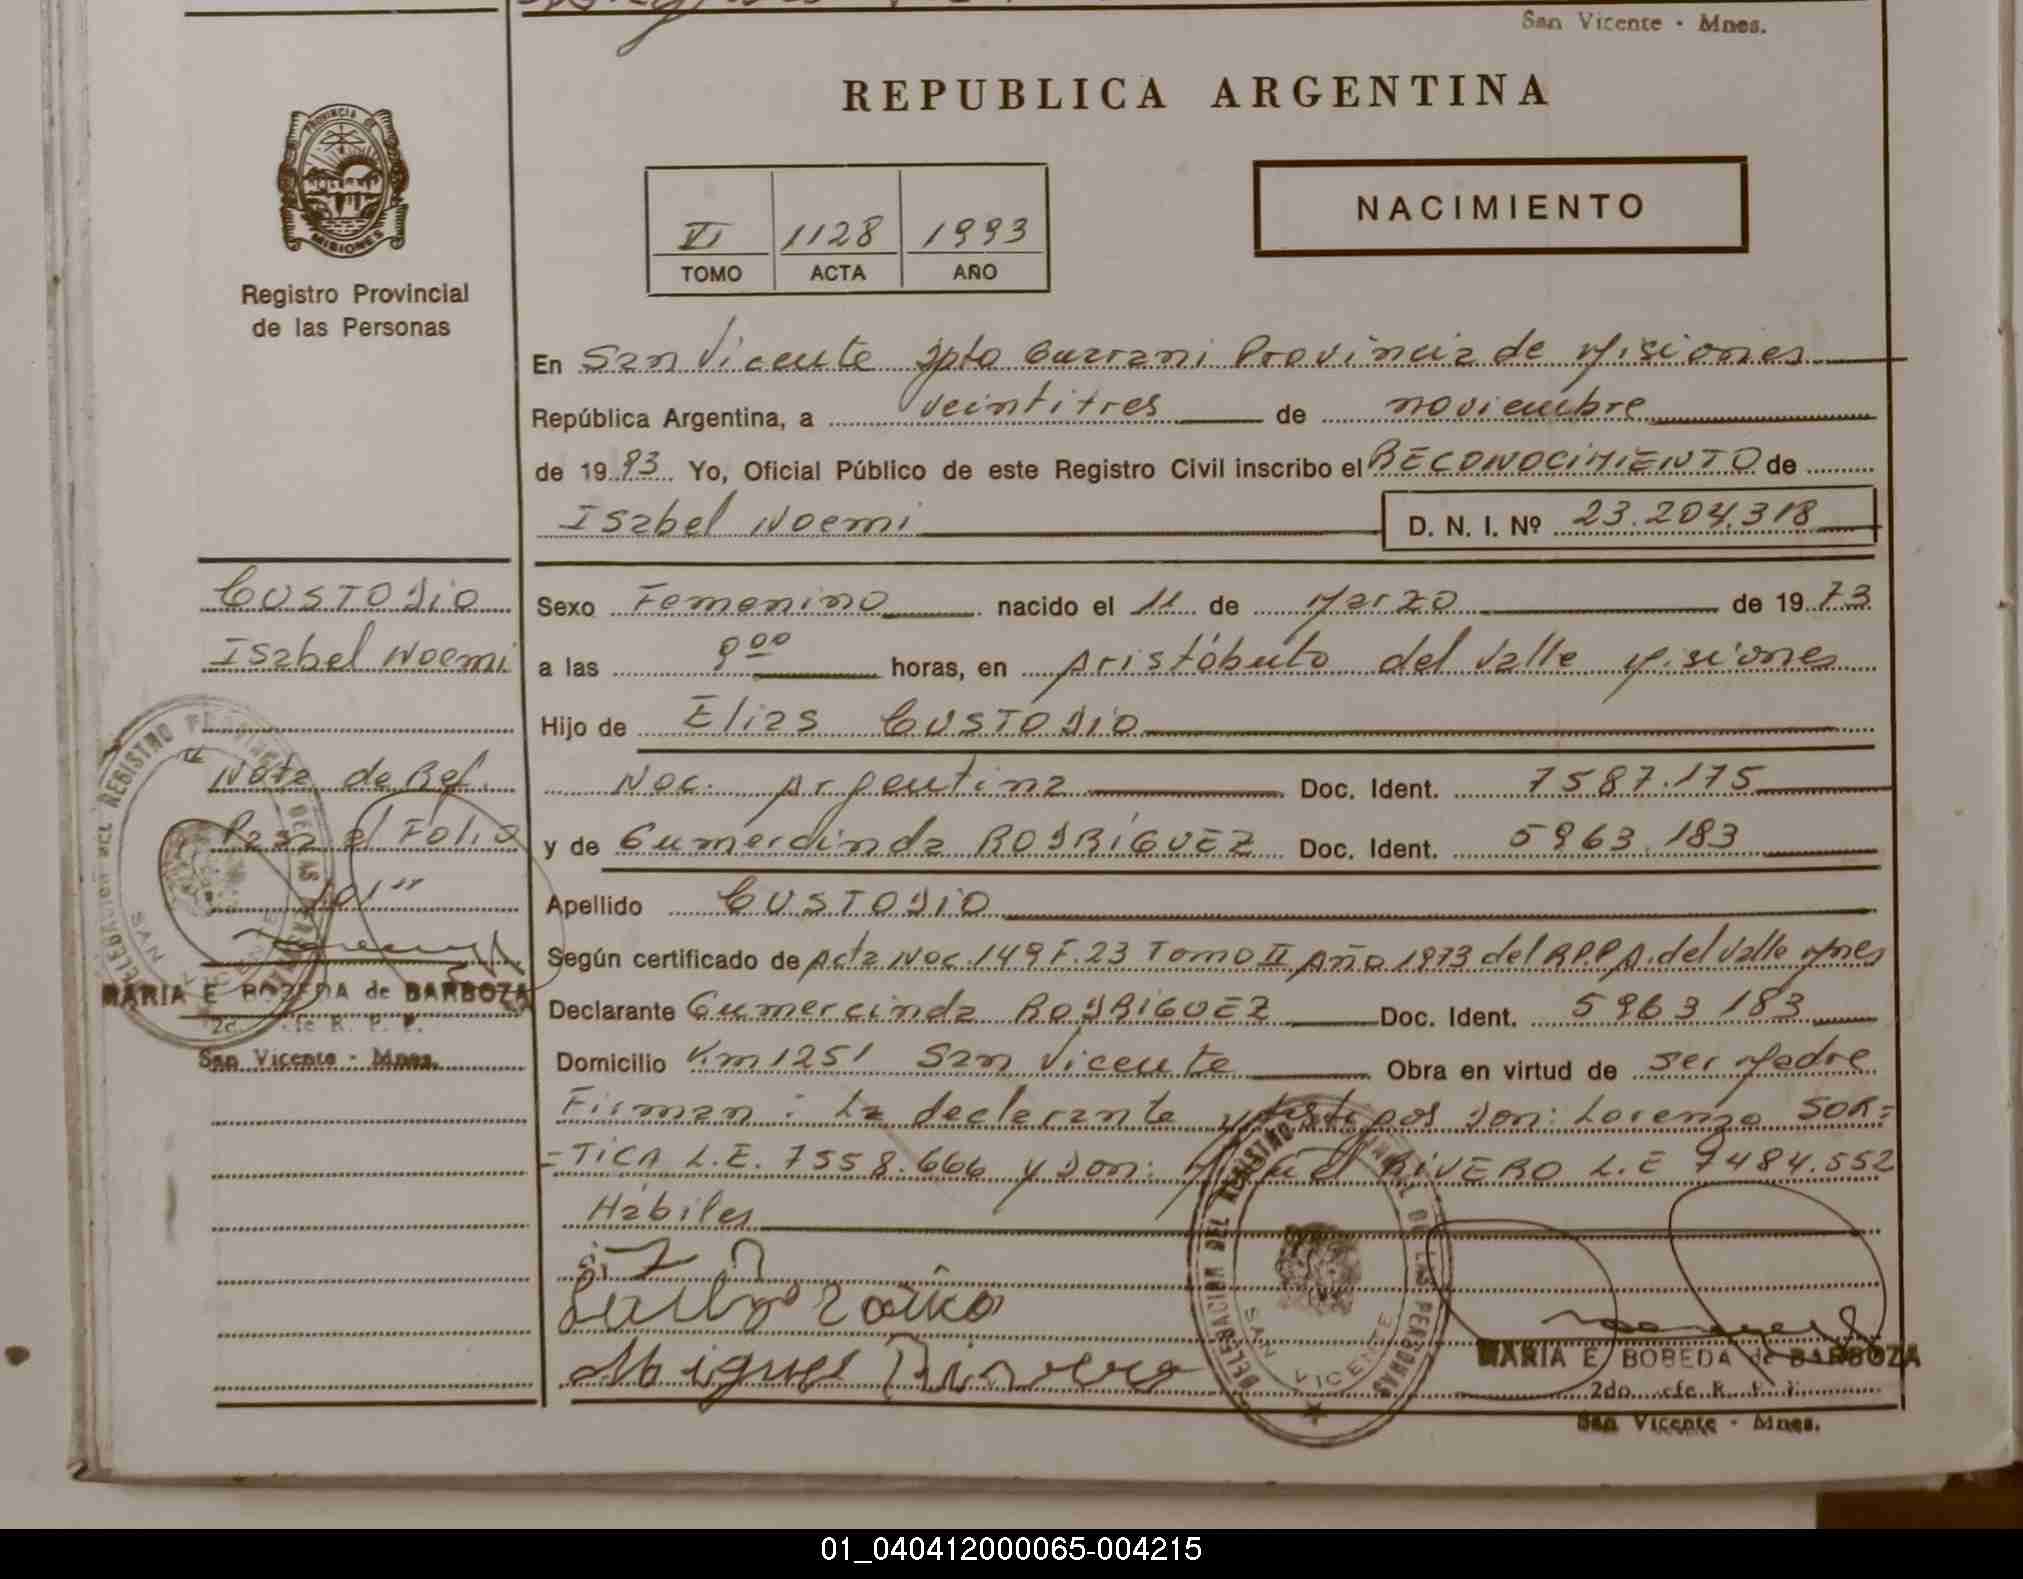 San Vicente - Mnes.
REPUBLICA ARGENTINA
PROVINCIA DE
MISIONES
Registro Provincial
de las Personas
VI 1128 1993
TOMO ACTA AÑO
NACIMIENTO
En San Vicente Dpto Guarani Provincia de Misiones
República Argentina, a veintitres de noviembre
de 1993 Yo, Oficial Público de este Registro Civil inscribo el RECONOCIMIENTO de
Isabel Noemi D. N. I. Nº 23.204.318
Sexo Femenino nacido el 11 de Marzo de 1973
a las 9 00 horas, en Aristóbulo del Valle Misiones
Hijo de Elias CUSTODIO
Nac. Argentina Doc. Ident. 7587.175
y de Gumercinda RODRÍGUEZ Doc. Ident. 5963.183
Apellido CUSTODIO
Según certificado de Acta Nac. 149 F. 23 Tomo II Año 1973 del R.P.P A. del Valle Mnes
Declarante Gumercinda RODRIGUEZ Doc. Ident. 5963 183
Domicilio Km 1251 San Vicente Obra en virtud de ser Madre
Firman: La declarante y testigos Don: Lorenzo SOR=
=TICA L.E. 7558.666 y Don: Miguel RIVERO L.E 7484.552
Hábiles
Miguel Rivero
DELEGACION DEL REGISTRO PROVINCIAL DE LAS PERSONAS
SAN VICENTE
MARIA E BOBEDA de BARBOZA
San Vicente - Mnes.
CUSTODIO
Isabel Noemi
Nota de Ref.
Pasa al Folio
101"
DELEGACION DEL REGISTRO PROVINCIAL DE LAS PERSONAS
SAN VICENTE
MARIA E BOBEDA de BARBOZA
San Vicente - Mnes.
01_040412000065-004215